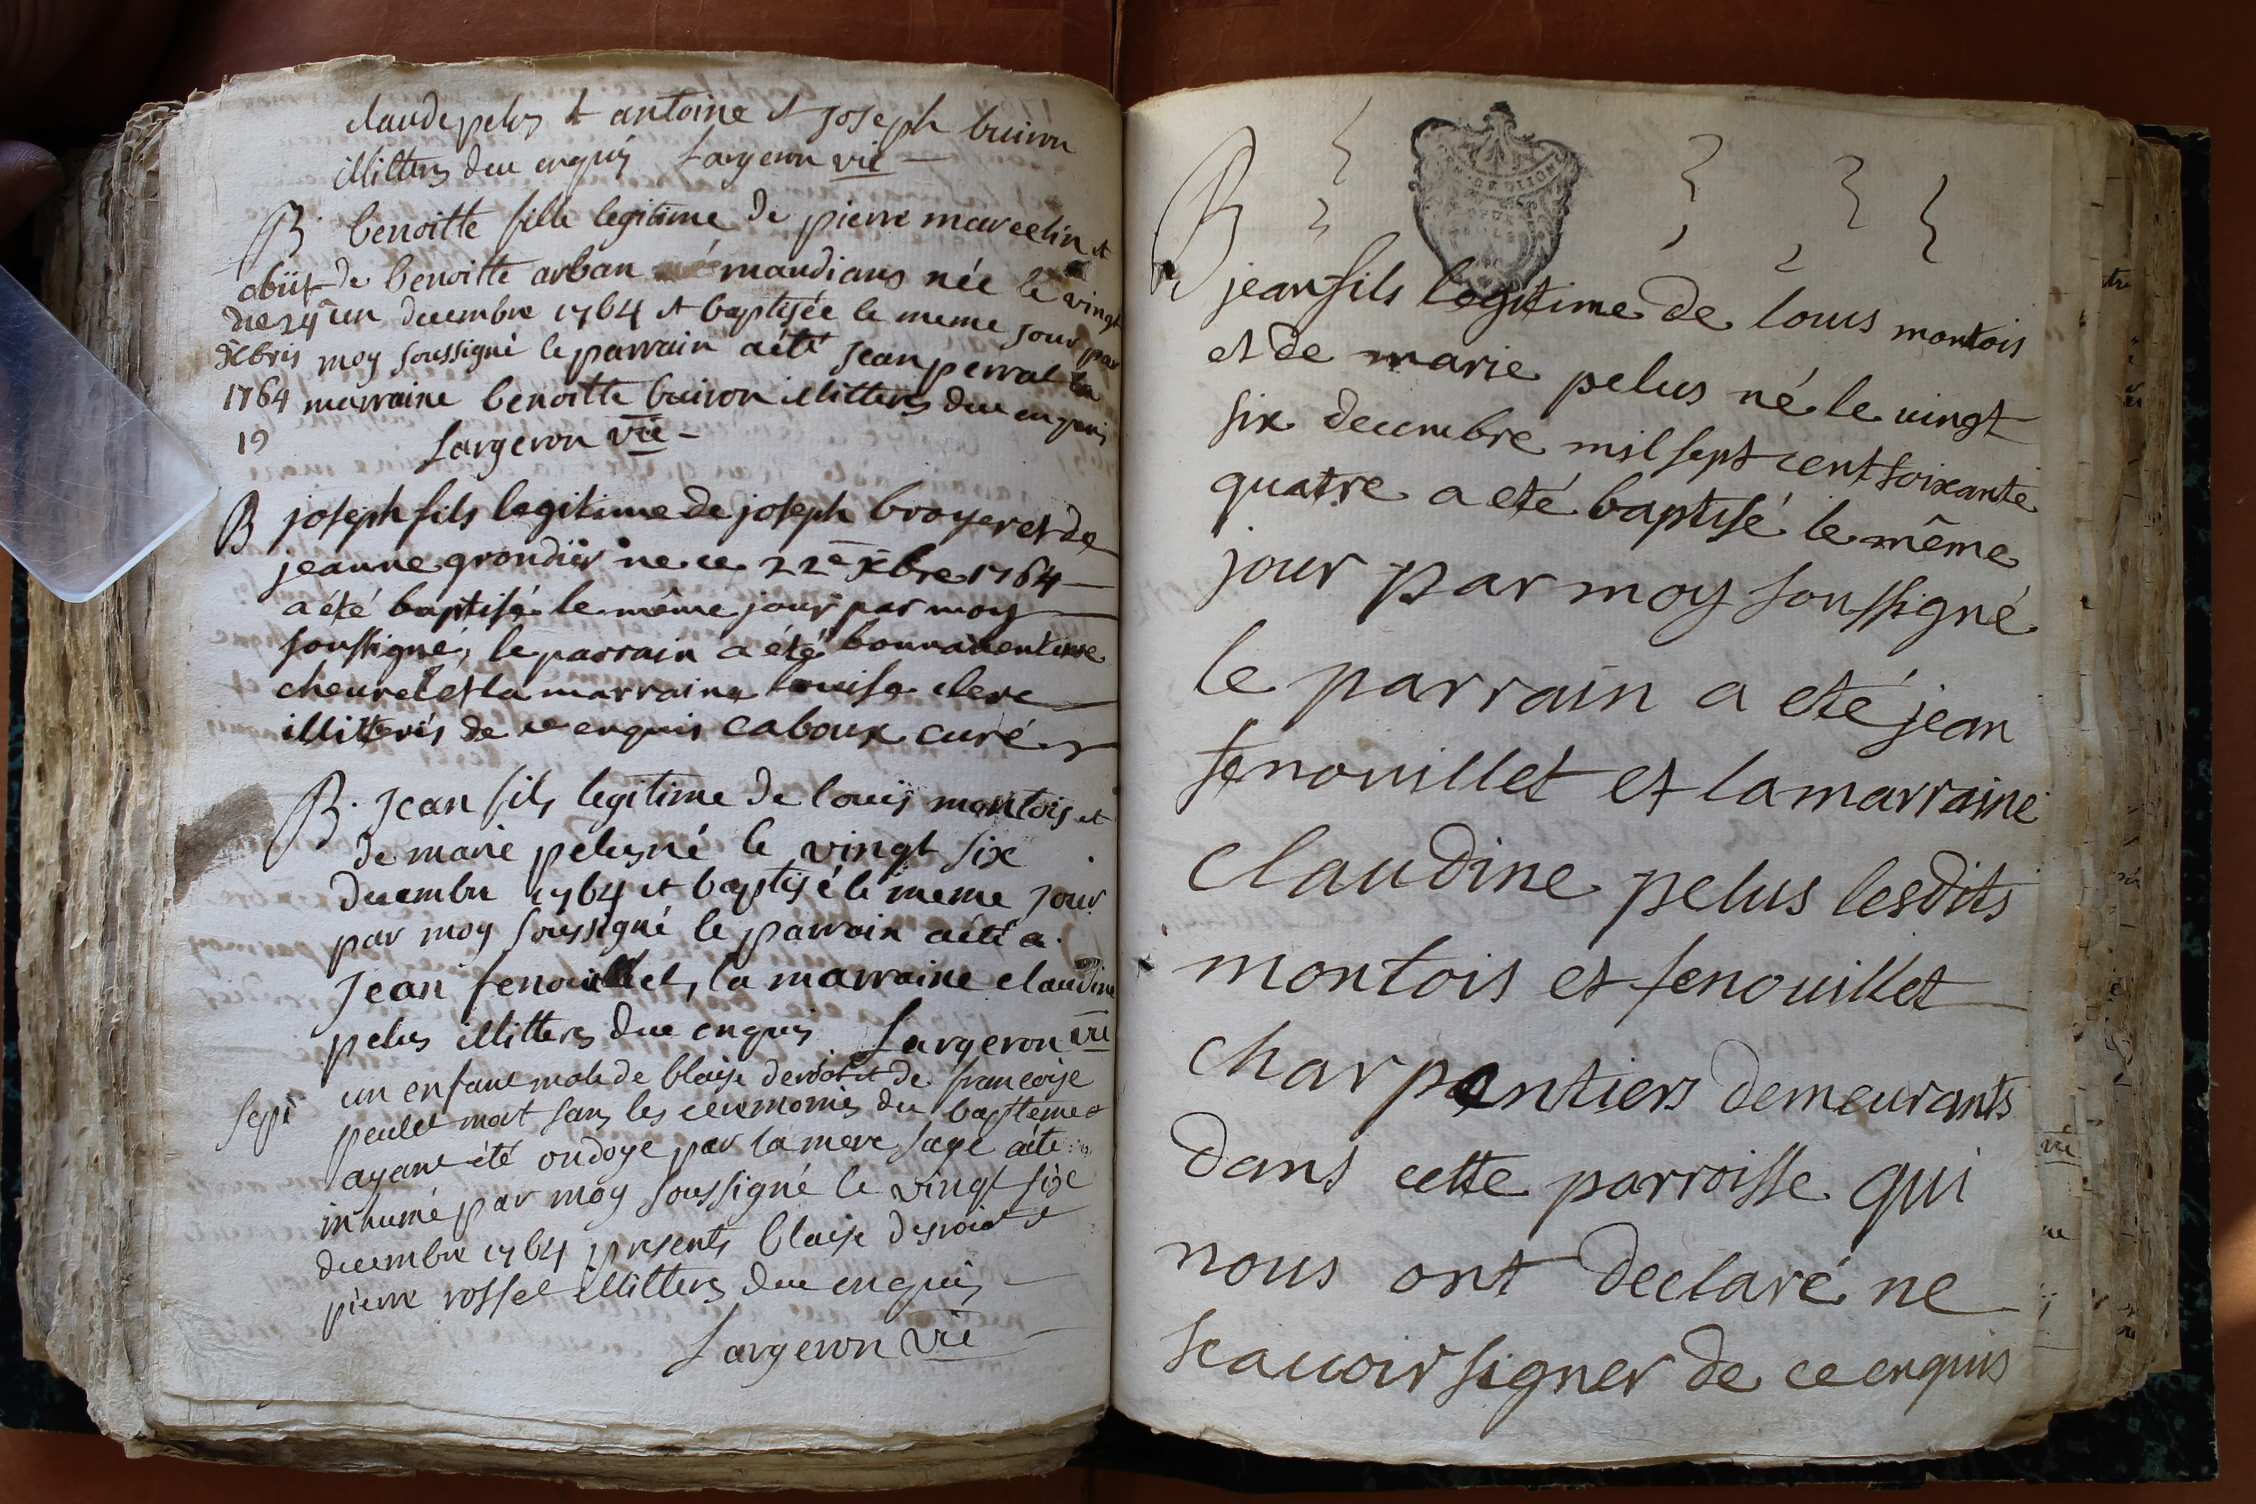 claude pelus et antoine et joseph buiron
illitters due enquis Largeron vic
B. benoitte fille legitime de pierre marcelin et
obiit de benoitte arban mandians née le vingt
die 24 un decembre 1764 et baptisée le meme jour par
xbris moy soussigné le parrain aété jean perrat la
1764 marraine benoitte buiron illitters due enquis
19 Largeron vic
B joseph fils legitime de joseph broyer et de
jeanne grondier ne ce 22e xbre 1764
a été baptisé le même jour par moy
soussigné, le parrain a été bonnaventure
chevret et la marraine louise clerc
illitterés de ce enquis caboux curé
B. Jean fils legitime de louis montois et
de marie pelus né le vingt six
decembre 1764 et baptisé le meme jour
par moy soussigné le parrain aété a
Jean fenouillet, la marraine claudine
pelus illitters due enquis Largeron vic
sept un enfant male de blaise deroist et de francoise
peulet mort sans les ceremonies du bapteme et
ayant été ondoye par la mere sage aéte
inhumé par moy soussigné le vingt six
decembre 1764 presents blaise desroist et
pierre rosset illitters due enquis
Largeron vic
B
jean fils legitime de louis montois
et de marie pelus né le vingt
six decembre mil sept cent soixante
quatre a eté baptisé le même
jour par moy soussigné
le parrain a eté jean
fenouillet et la marraine
claudine pelus lesdits
montois et fenouillet
charpentiers demeurants
dans cette parroisse qui
nous ont declaré ne
scavoir signer de ce enquis